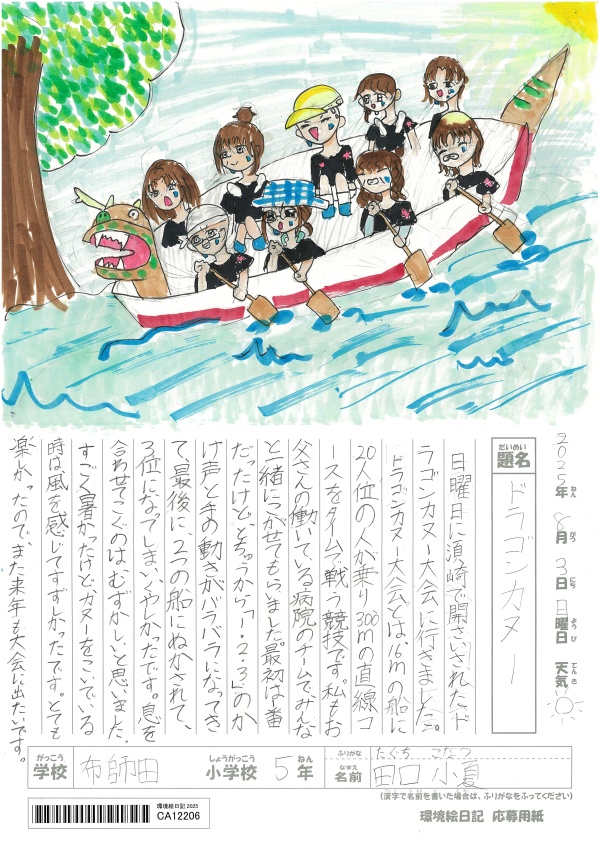 2025年 8月 3日 日曜日 天気
ねん がつ にち ようび てんき
だいめい
題名 ドラゴンカヌー
日曜日に須崎で開さいされたド
ラゴンカヌー大会に行きました。
ドラゴンカヌー大会とは、16mの船に
20人位の人が乗り300mの直線コ
ースをタイムで戦う競技です。私もお
父さんの働いている病院のチームでみんな
と一緒にこがせてもらいました。最初は一番
だったけど、とちゅうから「1・2・3」のか
け声と手の動きがバラバラになってき
て、最後に、2つの船にぬかされて、
3位になってしまい、くやしかったです。息を
合わせてこぐのは、むずかしいと思いました。
すごく暑かったけどカヌーをこいでいる
時は風を感じてすずしかったです。とても
楽しかったので、また来年も大会に出たいです。
がっこう しょうがっこう ねん
学校 布師田 小学校 5年
ふりがな たぐち こなつ
なまえ
名前 田口 小夏
(漢字で名前を書いた場合は、ふりがなをふってください)
環境絵日記 2025
CA12206
環境絵日記 応募用紙